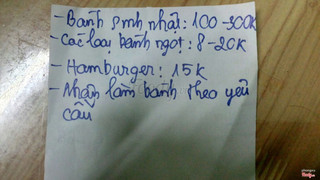 - Bánh sinh nhật: 100-300K
- Các loại bánh ngọt: 8-20K
- Hamburger: 15K
- Nhận làm bánh theo yêu
cầu